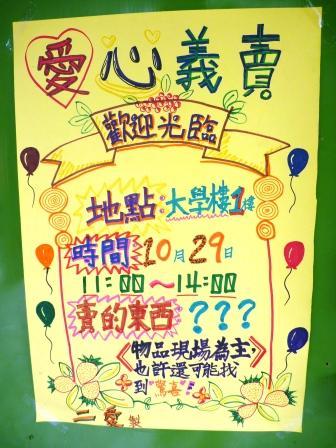 愛心義賣
歡迎光臨
地點:大學樓1樓
時間10月29日
11:00~14:00
賣的東西:???
《物品現場為主,
也許還可能找
到"驚喜"!
二愛製